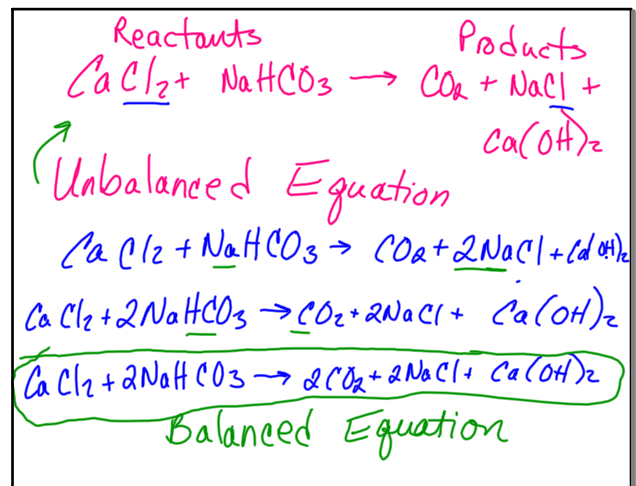 Reactants Products
CaCl₂ + NaHCO₃ → CO₂ + NaCl +
Ca(OH)₂
Unbalanced Equation
CaCl₂ + NaHCO₃ → CO₂ + 2NaCl + Ca(OH)₂
CaCl₂ + 2NaHCO₃ → CO₂ + 2NaCl + Ca(OH)₂
CaCl₂ + 2NaHCO₃ → 2CO₂ + 2NaCl + Ca(OH)₂
Balanced Equation